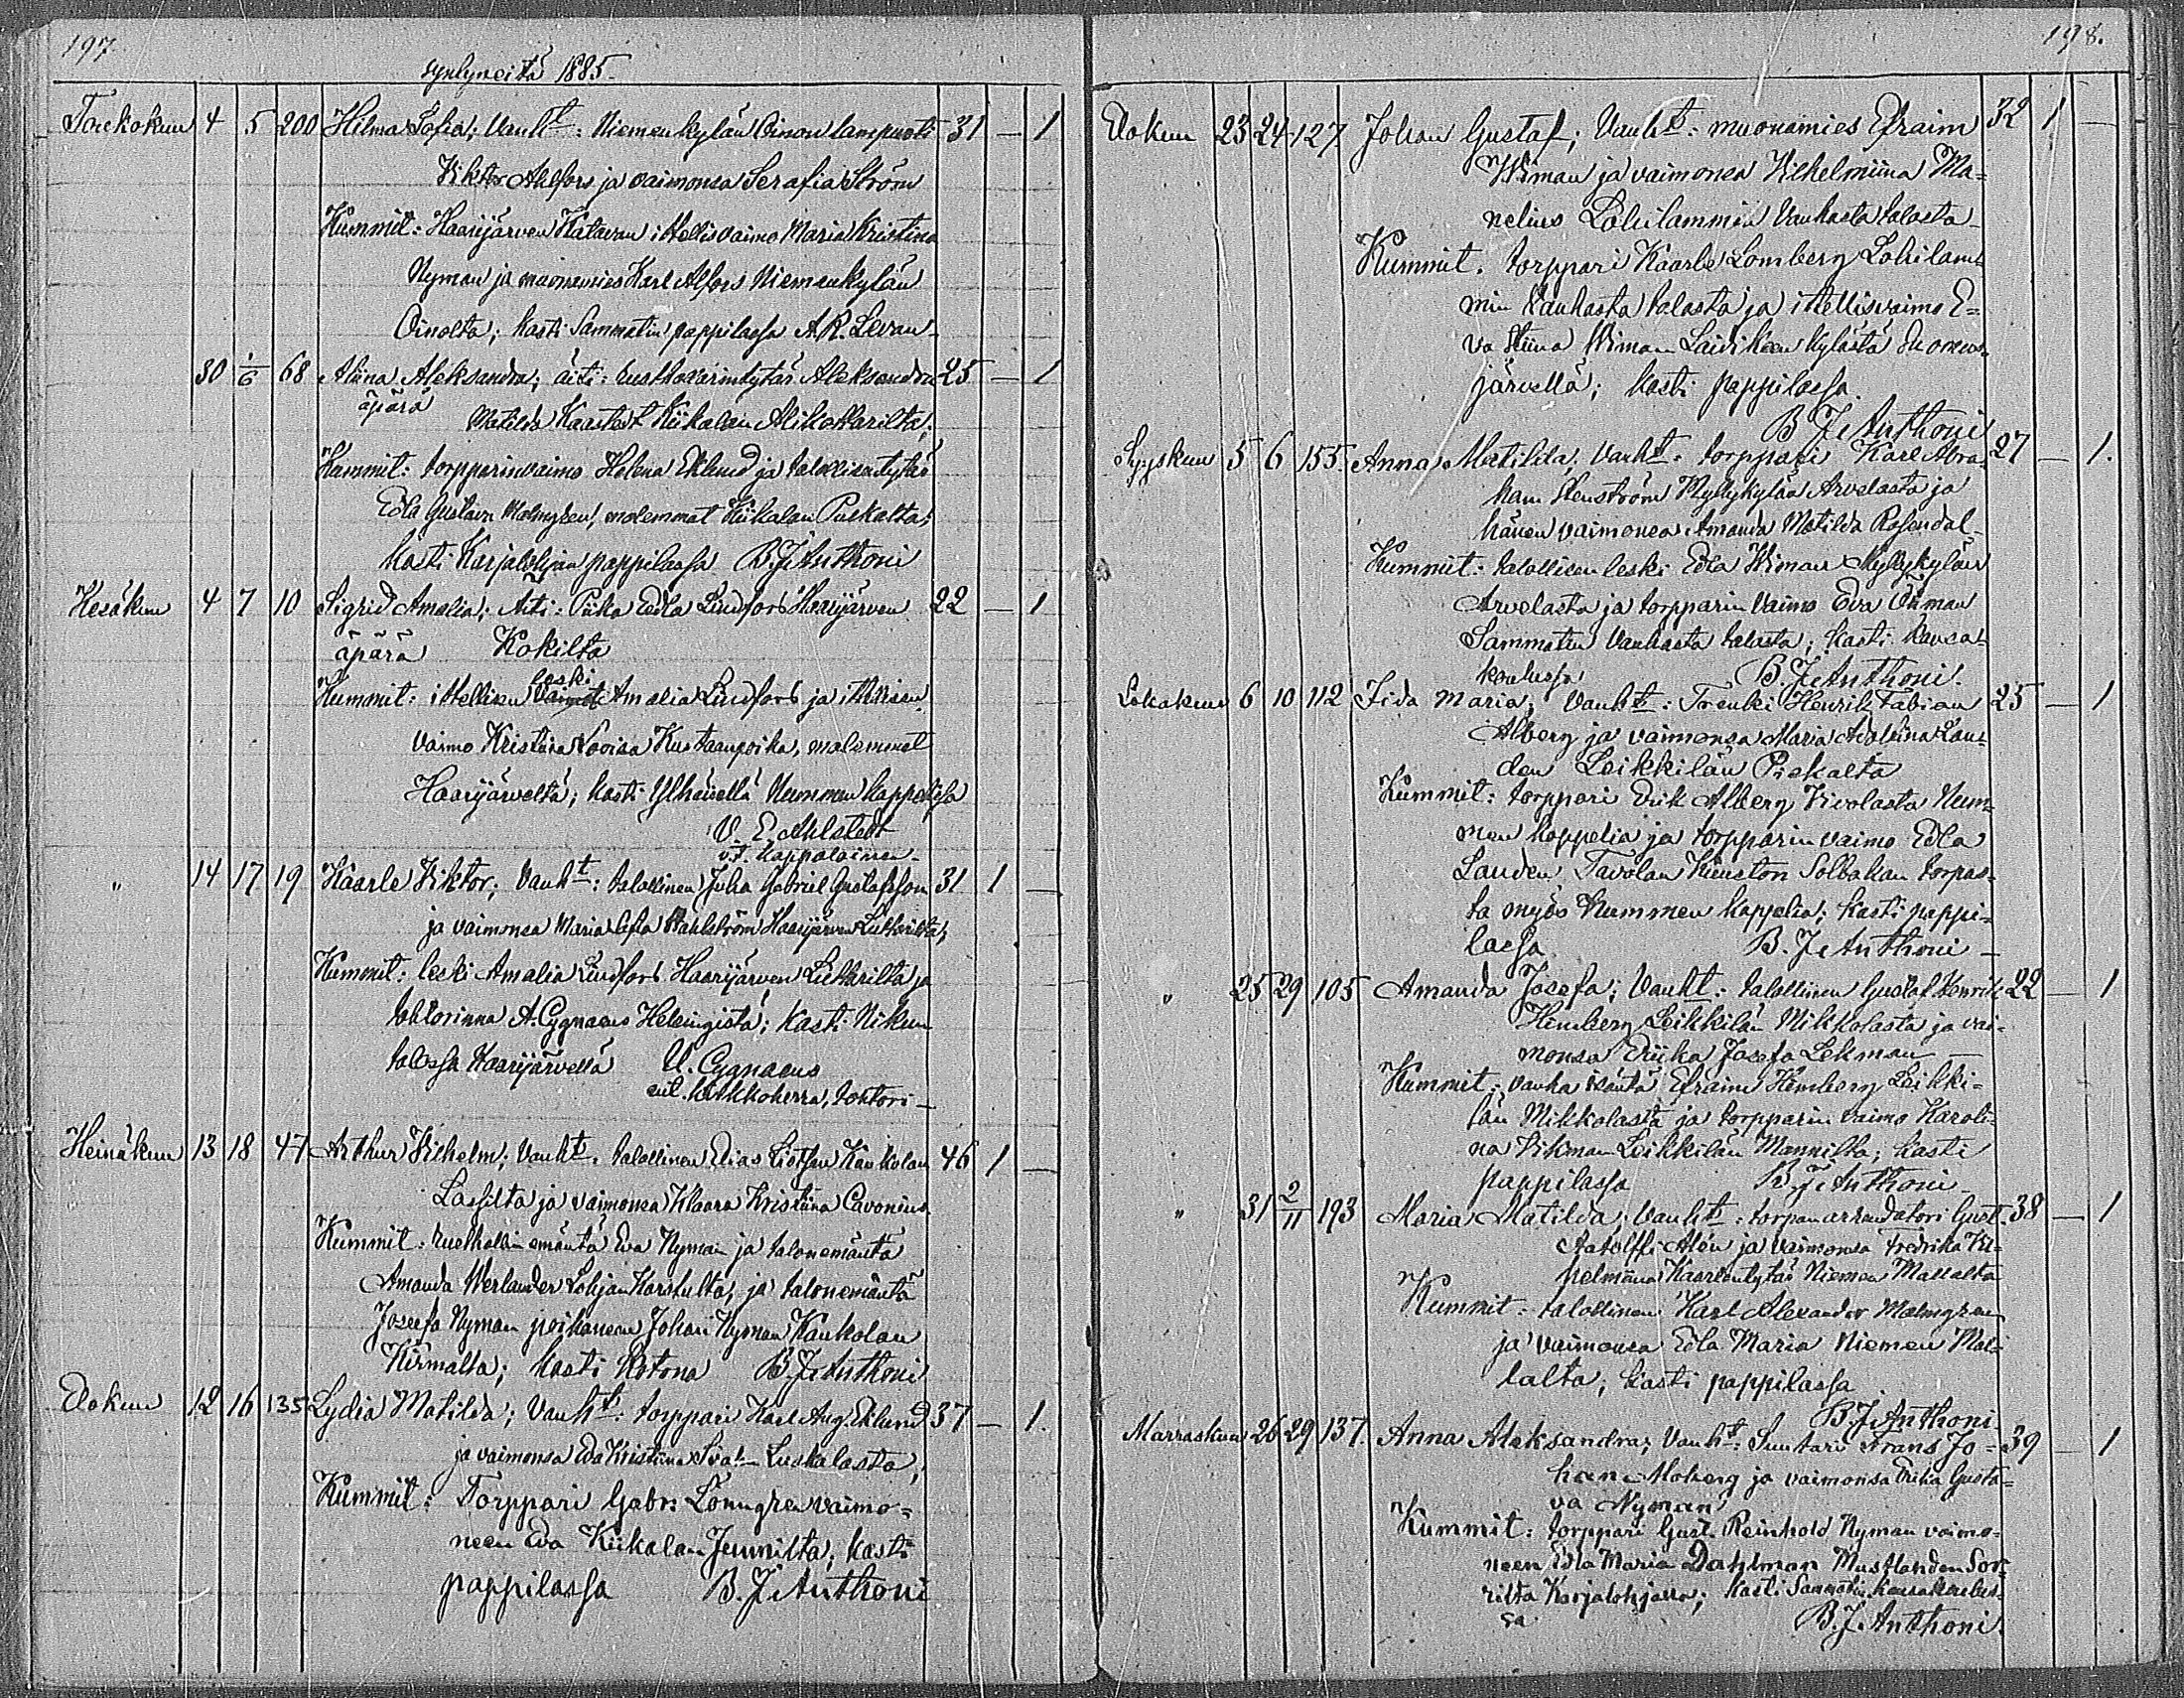 197
synlyneitä 1885.
Toukokuu 4 5 200 Hilma Sofia; Vanht: Niemenkylän Oinon lampuoti 31 — 1
Viktor Ahlfors ja vaimonsa Serafia Ström
Kummit: Haarijärven itellisvaimo Maria Kristina
Nyman ja muonamies Karl Alfors Niemenkylän
Oinolta; kasti Sammatin pappilassa A. R. Levan
30 1/6 68 Aliina Aleksandra; äiti: Aleksandra 25 — 1
äpärä Matilda Kaastedt Kiikalan Alikottarilta;
Kummit: torpparinvaimo Helena Eklund ja talollisentytär
Edla Gustava Malmgren, molemmat Kiikalan
kasti Karjalohjan pappilassa B. J. Anthoni
Kesäkuu 4 7 10 Sigrid Amalia; Äiti: Piika Edla Lindfors Haarijärven 22 — 1
äpärä Kokilta
leski
Kummit: itellisen Amalia Lindfors ja itellisen
vaimo Kristiina Lovisa Kustaanpoika, molemmat
Haarijärveltä; kasti Ylhäisellä Nummen kappelissa
V. E. Ahlstedt
v.t. kappalainen
" 14 17 19 Kaarle Viktor; Vanht: talollinen Juha Gabriel Gustafsson 31 1 —
ja vaimonsa Maria Sofia Wahlström Haarijärven Luttarilta;
Kummit: leski Amalia Lindfors Haarijärven Luttarilta ja
tohtorinna A. Cygnaeus Helsingistä; kasti Nikun
talossa Haarijärvellä U. Cygnaeus
kirkkoherra, tohtori —
Heinäkuu 13 18 47 Arthur Vilhelm; Vanht. talollinen Elias Kaukolan 46 1 —
Lassilta ja vaimonsa Klaara Kristiina Cavonius.
Kummit: rusthollin emäntä Eva Nyman ja talonemäntä
Amanda Werlander Lohjan Karstulta, ja talonemäntä
Josefa Nyman poikaneen Johan Nyman Kaukolan
Kirmalta; kasti kotona B. J. Anthoni
Elokuu 12 16 135 Lydia Matilda; Vanht: torppari Karl Aug. Eklund 37 — 1.
ja vaimonsa Eva Kristiina Luskalasta;
Kummit: Torppari Gabr: Lönngren vaimo=
neen Eva Kiikalan Jennilta; kasti
pappilassa B. J. Anthoni
198.
Elokuu 23 24 127 Johan Gustaf; Vanht: muonamies Efraim 32 1 —
Wiman ja vaimonsa Vilhelmiina Ma=
nelius Lohilammin Vanhasta talosta
Kummit. torppari Kaarle Lomberg Lohilam=
min Vanhasta talosta ja itellisvaimo E=
va Stiina Wiman Laidikeen kylästä Suomus=
järvellä; kasti pappilassa.
B. J. Anthoni
Syyskuu 5 6 155. Anna Matilda, Vanht: torppari Karl Abra= 27 — 1.
ham Stenström Myllykylän Arvelasta ja
hänen vaimonsa Amanda Matilda Rosendal
Kummit: talollisen leski Edla Wiman Myllykylän
Arvelasta ja torpparin vaimo Eva Öhman
Sammatin Vanhasta talosta; kasti kansa=
koulussa B. J. Anthoni.
Lokakuu 6 10 112 Iida Maria; Vanht: Trenki Henrik Fabian 25 — 1
Alberg ja vaimonsa Maria Adolfina Lau=
den Leikkilän Piekalta
Kummit: torppari Erik Alberg Hivolasta Num=
men kappelia ja torpparin vaimo Edla
Lauden, Tavolan Solbakan torpas=
ta myös Nummen kappelia; kasti pappi=
lassa. B. J. Anthoni —
" 25 29 105 Amanda Josefa; Vanht: talollinen Gustaf Henrik 22 — 1
Himberg Leikkilän Mikkolasta ja vai=
monsa Eriika Josefa Lekman —
Kummit: vanha isäntä Efraim Himberg Leikki=
län Mikkolasta ja torpparin vaimo Karoli=
na Vikman Leikkilän Mannilta; kasti
pappilassa B. J. Anthoni
" 31 2/11 193 Maria Matilda; Vanht: torpan arrendatori Gust. 38 — 1
Aatolffi Alén ja vaimonsa Fredrika Vil=
helmiina Kaarlentytär Niemen Mallalta
Kummit: talollinen Karl Alexander Malmgren
ja vaimonsa Edla Maria Niemen Mal=
lalta; kasti pappilassa
B. J. Anthoni
Marraskuu 26 29 137. Anna Aleksandra; Vanht: Suutari Frans Jo= 39 — 1
han Moberg ja vaimonsa Erika Gusta=
va Nyman
Kummit: torppari Gust. Reinhold Nyman vaimo=
neen Edla Maria Dahlman Mustlahden Sor=
rilta Karjalohjalla; kasti Sammatin kansakoulus=
sa. B. J. Anthoni.